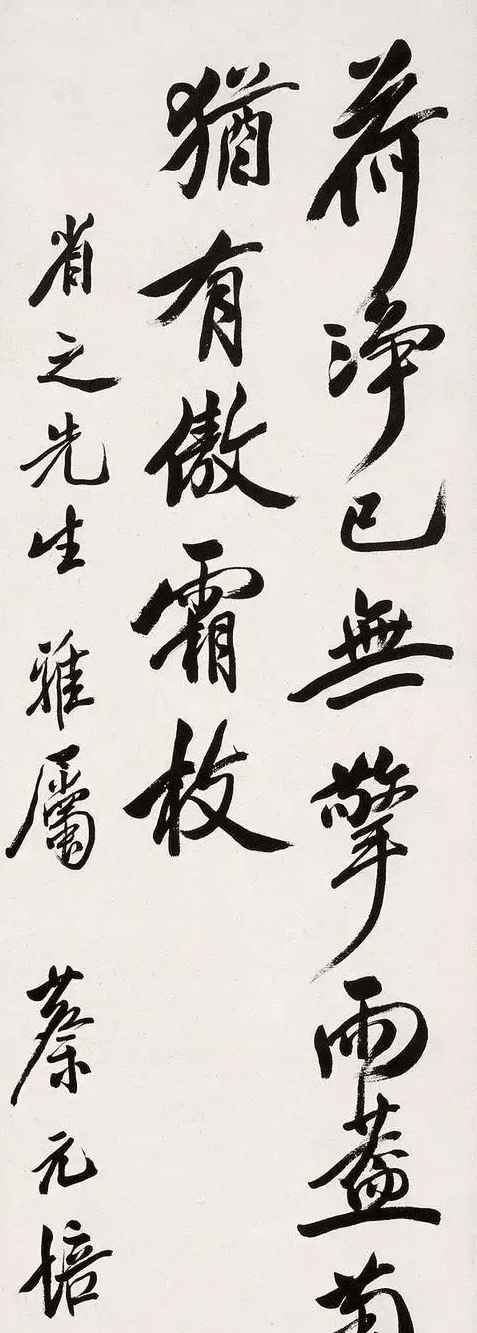 荷淨已無擎雨蓋菊
猶有傲霜枝
省之先生雅屬 蔡元培